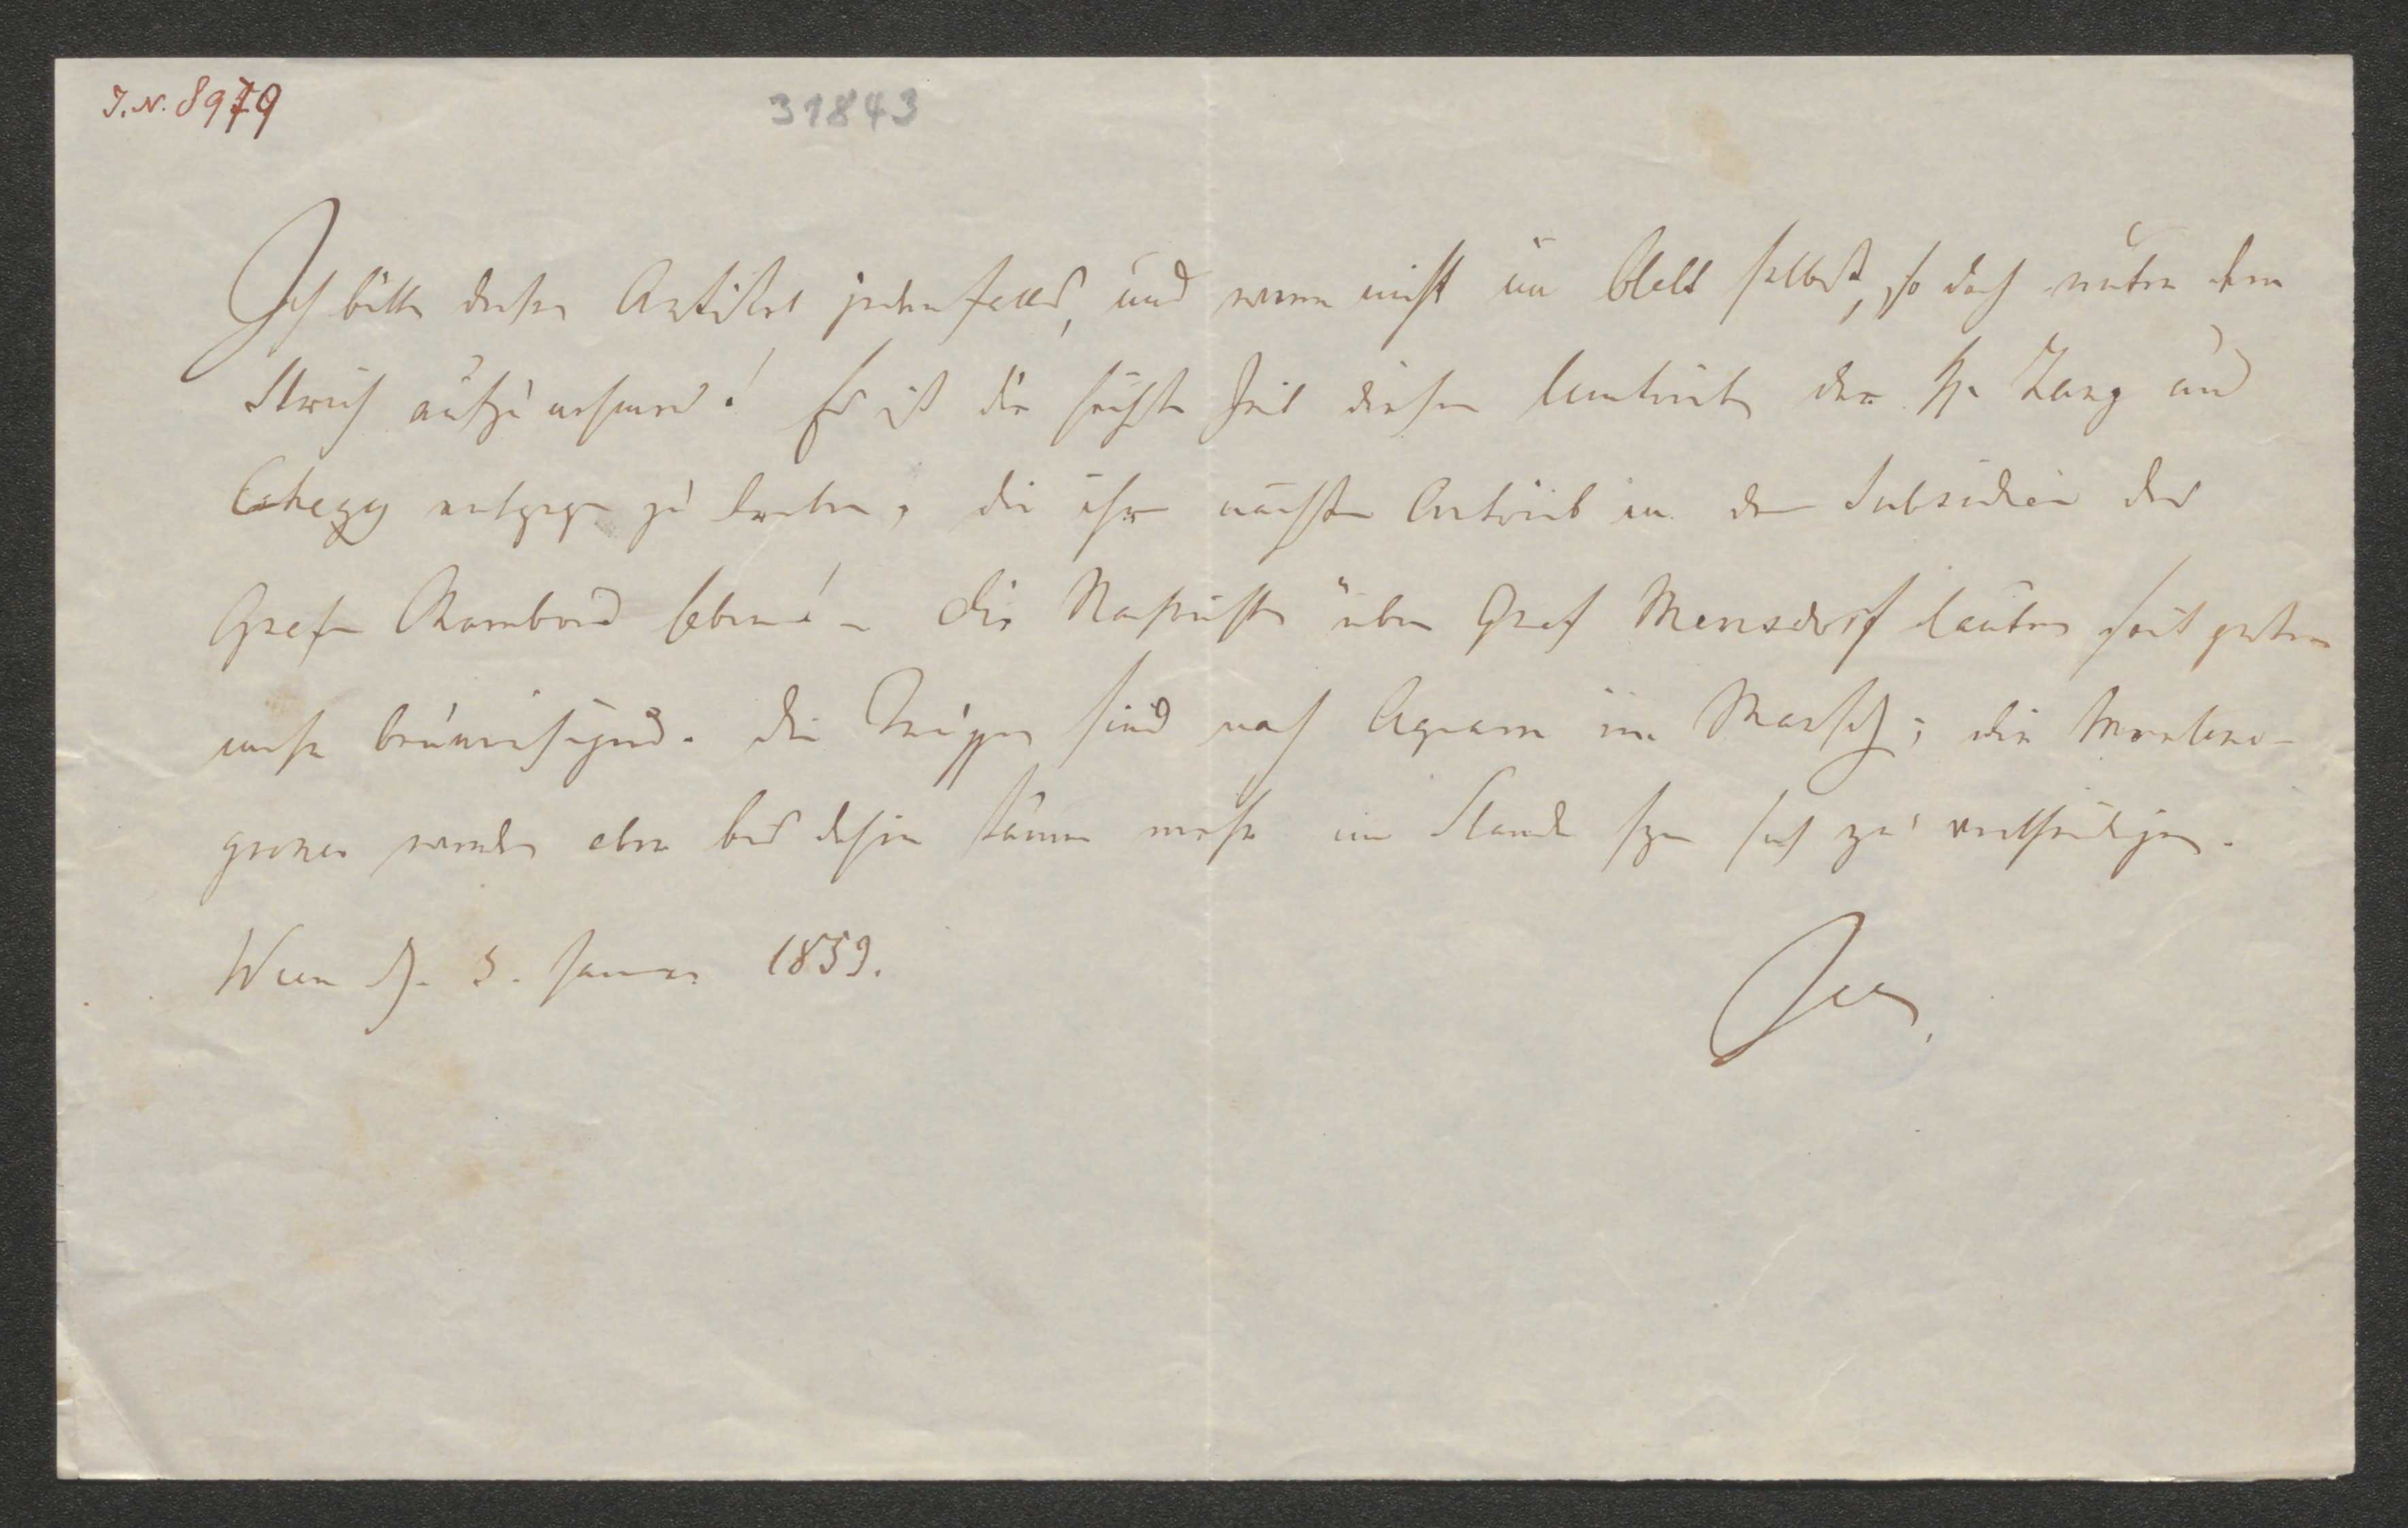 J.N. 8979
31843
Ich bitte diesen Artikel jedenfalls, und wenn nicht im Blatt selbst, so doch unter dem
Strich aufzunehmen! Es ist die höchste Zeit diesen Umtrieben der HH. Zang und
entgegen zu treten, die ihren nächsten Antrieb in den Subsidien des
Grafen Chambord haben! – Die Nachrichten über Graf Mensdorf lauten seit gestern
mehr beunruhigend. Die Truppen sind nach Agram im Marsch; die Montene-
griner werden aber bis dahin kaum mehr im Stande seyn sich zu vertheidigen.
Wien d. 5. Januar 1859.